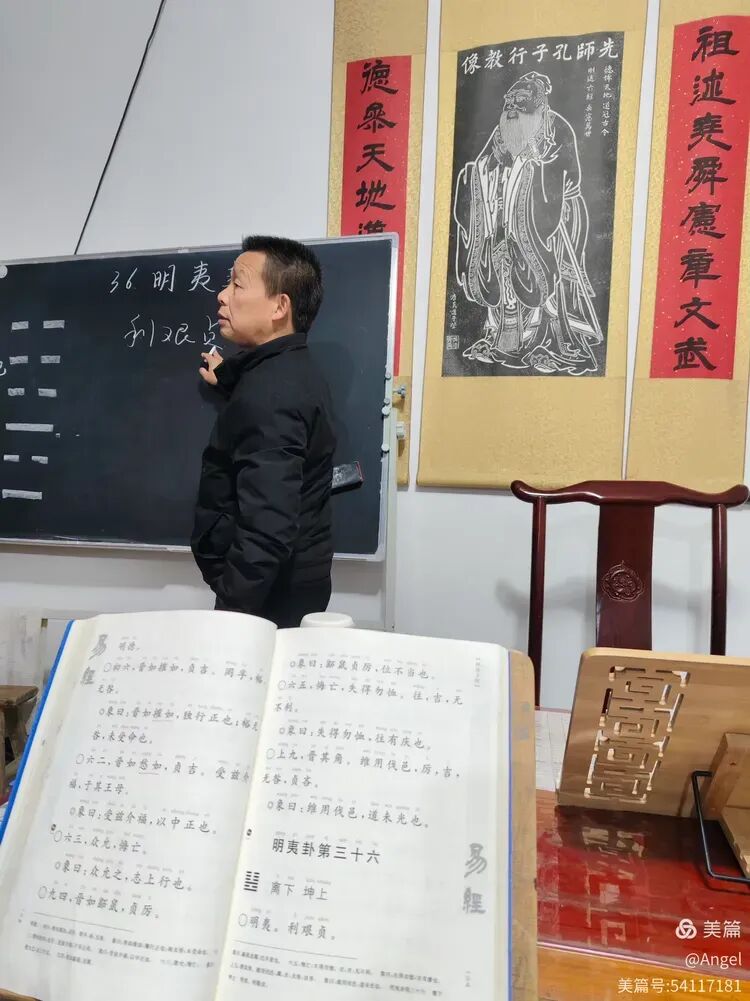 先師孔子行教像
德侔天地道冠古今
刪述六經垂憲萬世
德參天地道
祖述堯舜憲章文武
36明夷
利艰贞
易經
明德。
○初六,晋如摧如,贞吉。罔孚,裕
无咎。
○象曰:晋如摧如,独行正也;裕无
咎,未受命也。
○六二,晋如愁如,贞吉。受兹介
福,于其王母。
○象曰:受兹介福,以中正也。
○六三,众允,悔亡。
○象曰:众允之,志上行也。
○九四,晋如鼫鼠,贞厉。
○象曰:鼫鼠贞厉,位不当也。
○六五,悔亡,失得勿恤。往,吉,无
不利。
○象曰:失得勿恤,往有庆也。
○上九,晋其角。维用伐邑,厉,吉,
无咎,贞吝。
○象曰:维用伐邑,道未光也。
明夷卦第三十六
離下 坤上
○明夷。利艰贞。
易經
美篇
@Angel
美篇号:54117181